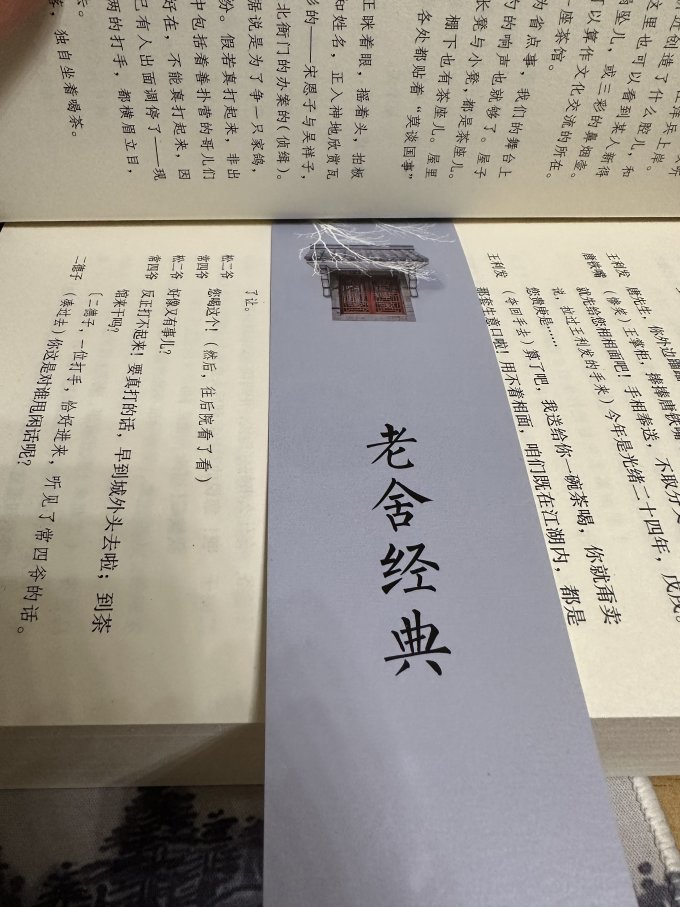 兵上岸。
近创造了什么腔儿，和
这里也可以看到某人新得
扇坠儿，或三彩的鼻烟壶。
可以算作文化交流的所在。
一座茶馆。
为省点事，我们的舞台上
勺的响声也就够了。屋子
长凳与小凳，都是茶座儿。
棚下也有茶座儿。屋里
各处都贴着“莫谈国事”
正眯着眼，摇着头，拍板
知姓名，正入神地欣赏瓦
的——宋恩子与吴祥子，
北衙门的办案的（侦缉）。
据说是为了争一只家鸽，
纷。假若真打起来，非出
中包括着善扑营的哥儿们
好在，不能真打起来，因
已有人出面调停了——现
两的打手，都横眉立目，
去。
落，独自坐着喝茶。
王利发 唐先生，你外边蹓蹓
唐铁嘴 （惨笑）王掌柜，捧捧唐铁嘴
就先给您相相面吧！手相奉送，不取分文
说，拉过王利发的手来）今年是光绪二十四年，戊戌。
您贵庚是……
王利发 （夺回手去）算了吧，我送给你一碗茶喝，你就甭卖
那套生意口啦！用不着相面，咱们既在江湖内，都是
老舍经典
了让。
松二爷 您喝这个！（然后，往后院看了看）
常四爷
松二爷 好像又有事儿？
常四爷 反正打不起来！要真打的话，早到城外头去啦；到茶
馆来干吗？
〔二德子，一位打手，恰好进来，听见了常四爷的话。
二德子 （凑过去）你这是对谁甩闲话呢？